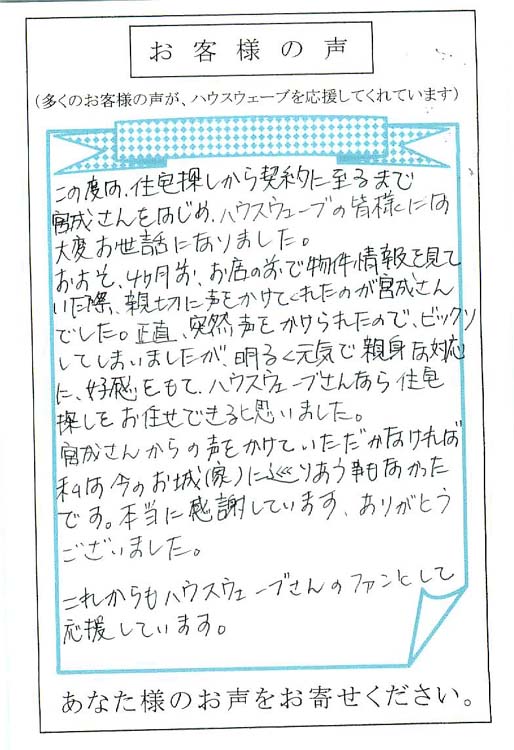 お客様の声
（多くのお客様の声が、ハウスウェーブを応援してくれています）
この度は、住宅探しから契約に至るまで
宮成さんをはじめ、ハウスウェーブの皆様には
大変お世話になりました。
およそ、4ヶ月前、お店の前で物件情報を見て
いた際、親切に声をかけてくれたのが宮成さん
でした。正直、突然声をかけられたので、ビックリ
してしまいましたが、明るく元気で親身な対応
に、好感をもて、ハウスウェーブさんなら住宅
探しをお任せできると思いました。
宮成さんからの声をかけていただかなければ
私は今のお城(家)に巡りあう事もなかった
です。本当に感謝しています、ありがとう
ございました。
これからもハウスウェーブさんのファンとして
応援しています。
あなた様のお声をお寄せください。